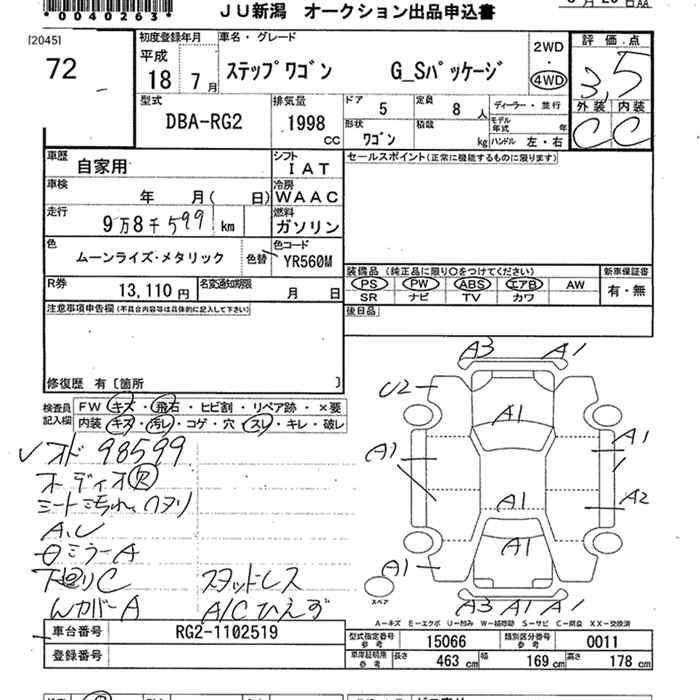 *0040263*
JU新潟 オークション出品申込書
[2045]
72
初度登録年月
平成
18 7月
車名・グレード
ステップワゴン G_Sパッケージ
2WD
・
4WD
評価点
3,5
外装 内装
C C
型式
DBA-RG2
排気量
1998 CC
ドア 5
定員 8人
ディーラー・並行
形状 ワゴン
積載 kg
モデル年式 年
ハンドル 左・右
車歴
自家用
シフト
IAT
セールスポイント(正常に機能するものに限ります)
車検
年 月( 日)
冷房
WAAC
走行
9万8千599 km
燃料
ガソリン
色
ムーンライズ・メタリック
色替
色コード
YR560M
装備品(純正品に限り〇をつけてください)
新車保証書
PS PW ABS エアB AW
有・無
SR ナビ TV カワ
R券
13,110円
名変通知期限
月 日
後日品
注意事項申告欄(不具合内容等は具体的に記入して下さい)
修復歴 有〔箇所 〕
検査員記入欄
FW キズ・飛石・ヒビ割・リペア跡・×要
内装 キズ・汚レ・コゲ・穴・スレ・キレ・破レ
レオド 98599
オーディオ欠
シート汚れ、ヘタリ
A.U
日ミラーA
下廻りC スタッドレス
WカバーA A/Cひえず
A3 A1
U2
A1
A1 A1
A1 A2
A1
A1
A3 A1 A1
スペア
A-キズ E-エクボ U-凹み W-補修跡 S-サビ C-腐食 XX-交換済
車台番号
RG2-1102519
登録番号
型式指定番号 参考
15066
類別区分番号 参考
0011
車庫証明用 参考
長さ 463 cm
幅 169 cm
高さ 178 cm